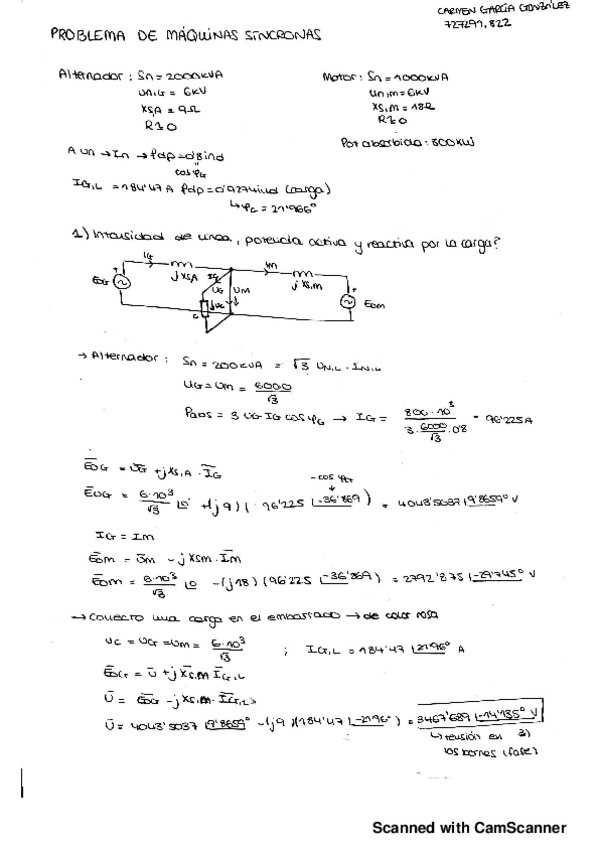 CARMEN GARCÍA GONZÁLEZ
PROBLEMA DE MÁQUINAS SÍNCRONAS
Alternador: Sn = 2000 kVA
Motor: Sn = 1000 kVA
Un,G = 6kV
Un,m = 6kV
Xs,A = 9Ω
Xs,m = 18Ω
R≃0
R≃0
Pot absorbida: 800 kW
A Un → In → fdp = 0'8 ind
cos φG
IG,L = 184'47 A fdp = 0'9274 ind (carga)
↳ φc = 21'966°
1) Intensidad de línea, potencia activa y reactiva por la carga?
IG
Im
j Xs,A
UG
UM
j Xs,m
EOG
UC
C
EOm
→ Alternador: Sn = 200 kVA = √3 UN,L · IN,L
UG = Um = 6000/√3
Pabs = 3 UG IG cos φG → IG = 800·10³/(3·6000/√3·0'8) = 96'225 A
EOG = UG + j Xs,A · IG
-cos φG
EOG = 6·10³/√3 ∠0° + (j9)(96'225 ∠-36'869) = 4043'5037 ∠9'8659° V
IG = Im
EOm = Um - j Xsm · Im
EOm = 6·10³/√3 ∠0 - (j18)(96'225 ∠-36'869) = 2792'875 ∠-29'745° V
→ Conecto una carga en el embarrado → de color rosa
UC = UG = Um = 6·10³/√3 ; IG,L = 184'47 ∠-21'96° A
EOG = U + j Xs,A IG,L
U = EOG - j Xs,A · IG,L
U = 4043'5037 ∠9'8659° - (j9)(184'47 ∠-21'96°) = 3467'689 ∠-14'135° V
↳ tensión en 3)
los bornes (fase)
Scanned with CamScanner